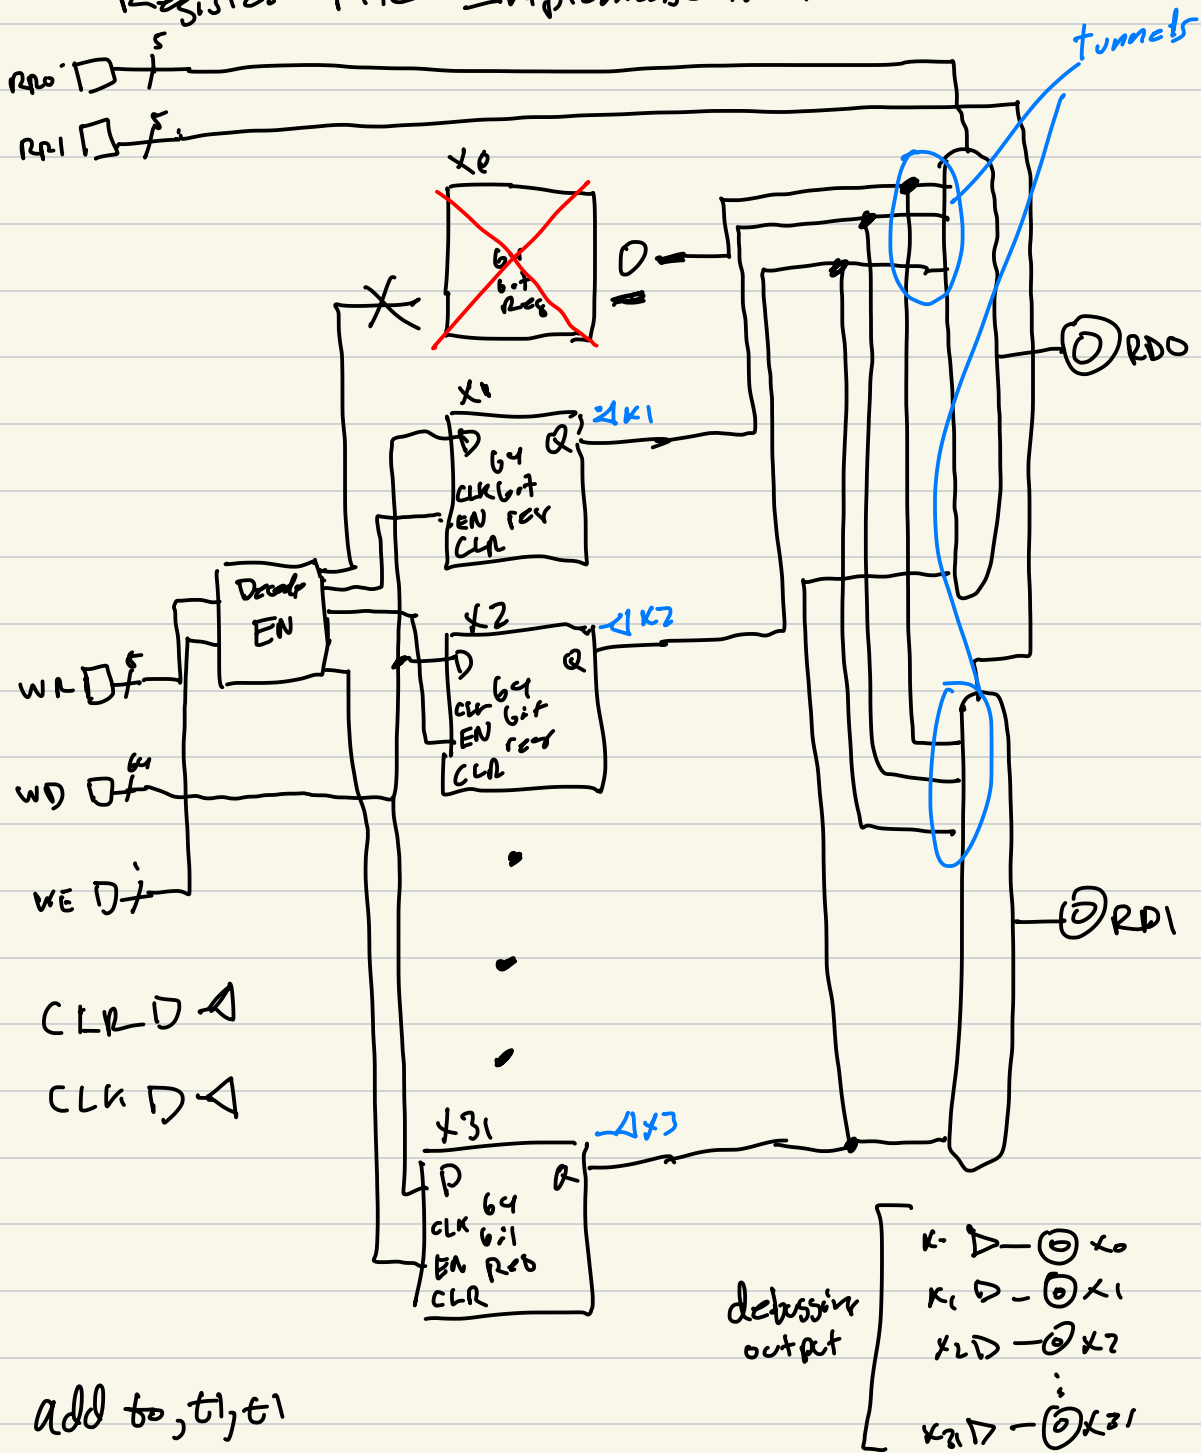 Register File Implementation
tunnels
RR0 5
RR1 5
X0
64
bit
Reg
0
RD0
X1
X1
D Q
64
CLK bit
EN reg
CLR
Decode
EN
X2
X2
D Q
64
CLK bit
EN reg
CLR
WR 5
WD 64
WE 1
RD1
CLR
CLK
X31
X3
D Q
64
CLK bit
EN Reg
CLR
debugging
output
X0
X1 X1
X2 X2
X31 X31
add t0, t1, t1